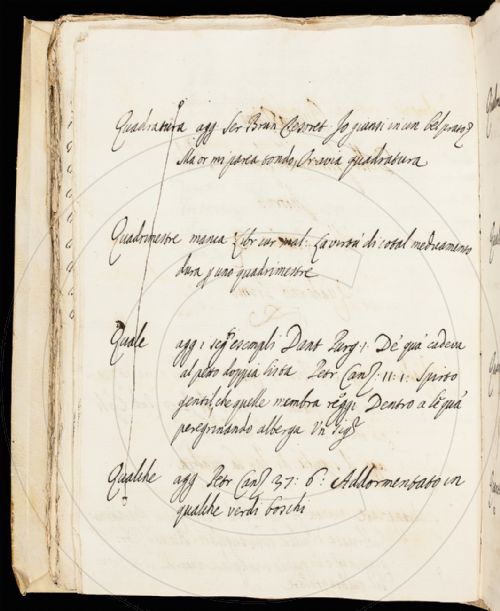 Quadratura agg Ser Brun Tesoret. Io giunsi in un bel prato
Ma or mi parea tondo, Or avia quadratura
Quadrimestre manca Libr cur mal: La virtú di cotal medicamento
dura p uno quadrimestre
Quale agg i seg esempli Dant Purg: 1: De qua cadeva
al peto doppia lista Petr Canz: 11: 1: Spirto
gentil, che quelle membra reggi Dentro a le qua
peregrinando alberga Un Sig
Qualche agg Petr Canz 37: 6: Addormentato in
qualche verdi boschi